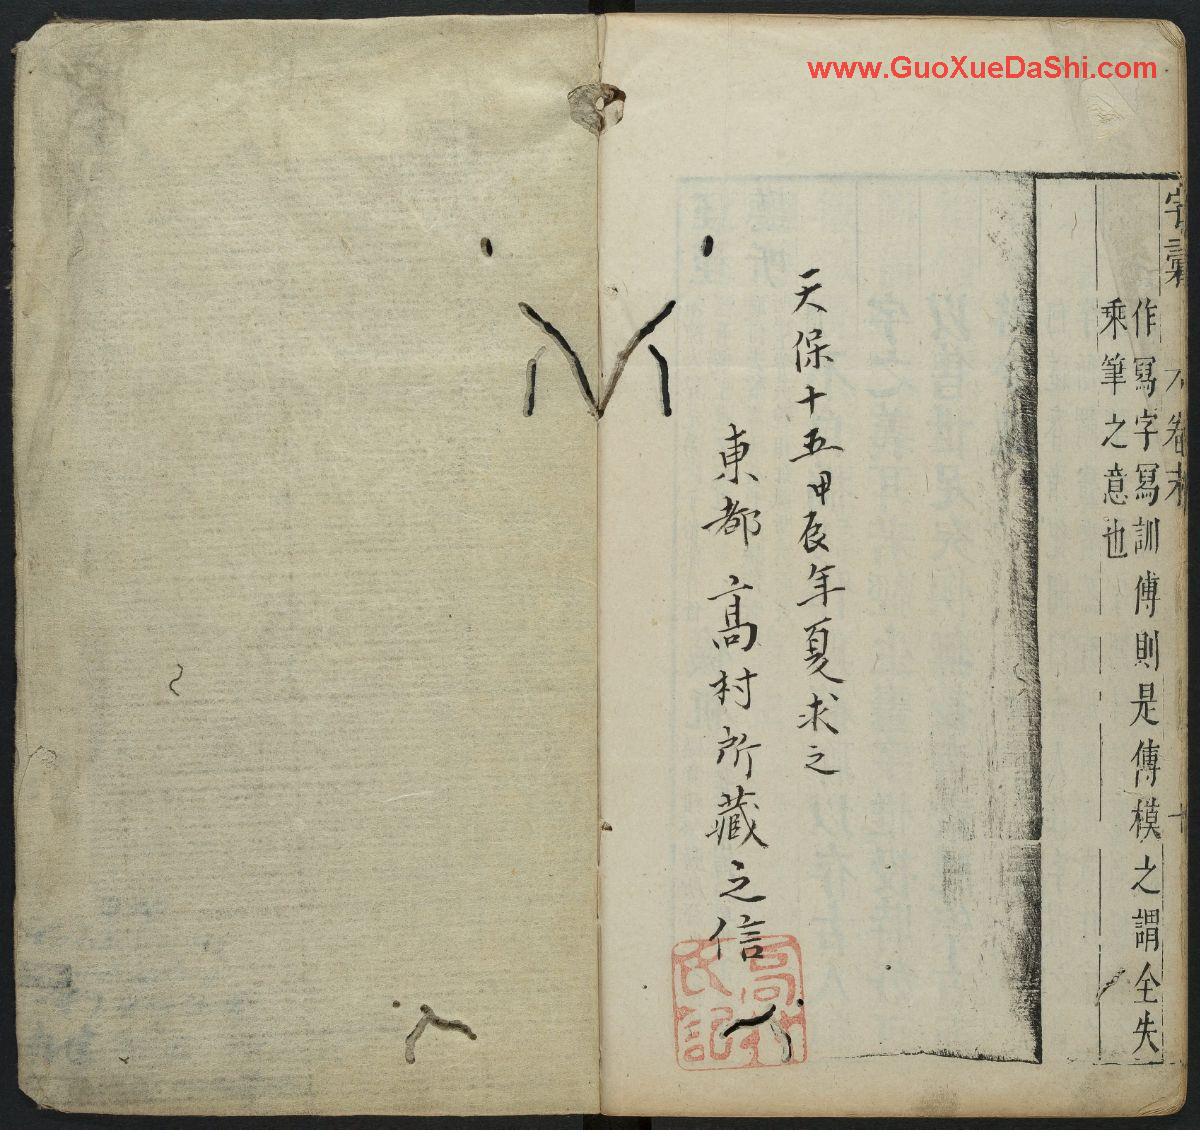 www.GuoXueDaShi.com
字彙 卷末 十
作冩字冩訓傳則是傳模之謂全失
乘筆之意也
天保十五甲辰年夏求之
東都高村所藏之信
高村
氏記